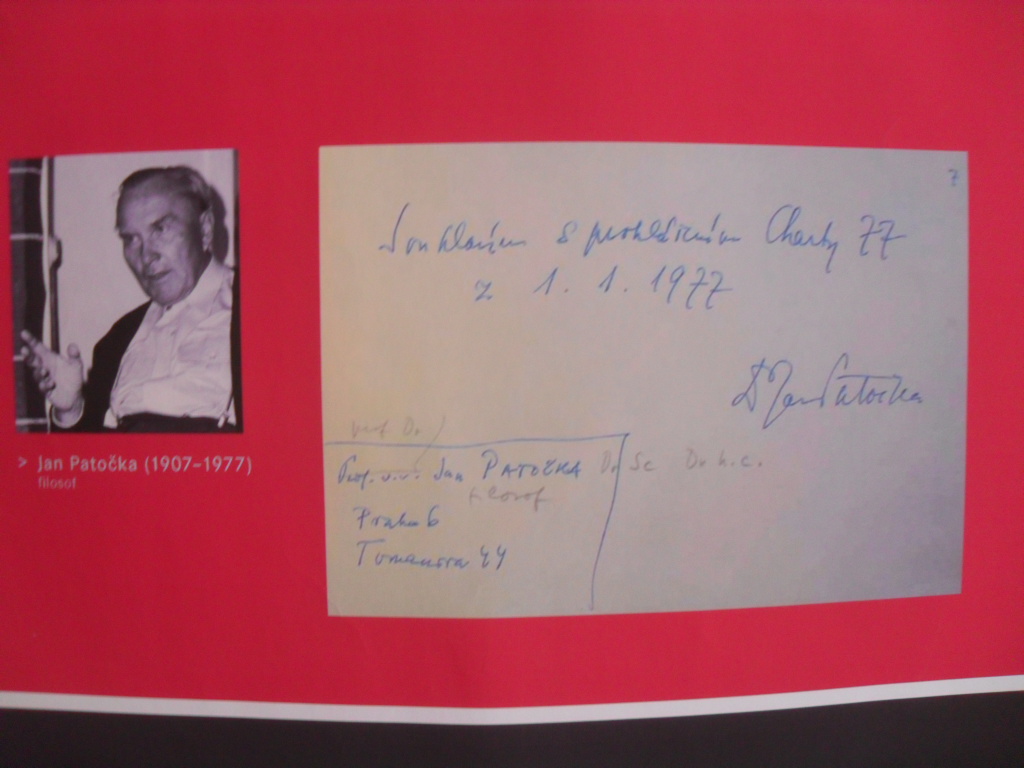 > Jan Patočka (1907–1977)
filosof
7
Souhlasím s prohlášením Charty 77
z 1. 1. 1977
Dr Jan Patočka
prof Dr
Prof. v.v. Jan PATOČKA Dr Sc Dr h.c.
filosof
Praha 6
Tomanova 44